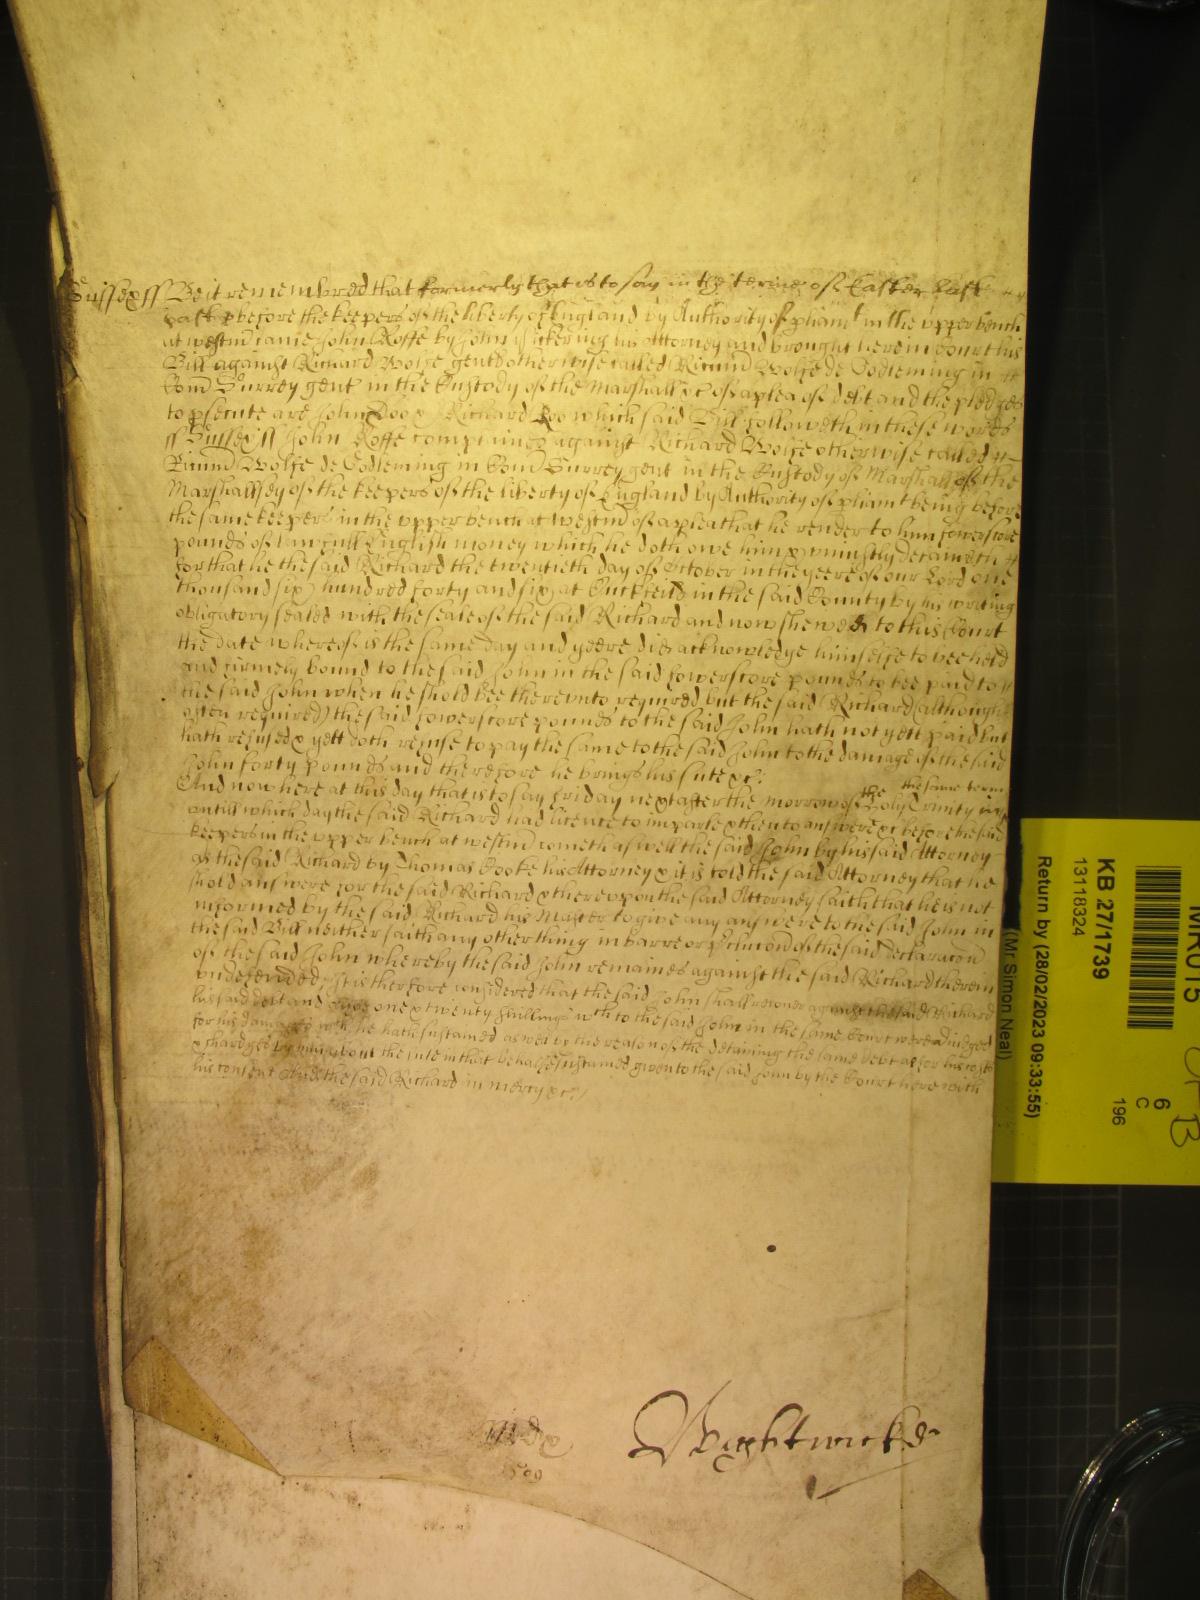 Sussex ss Be it remembred that formerly that is to say in the terme of Easter last
past before the keepers of the liberty of England by Authority of pliamt in the upper bench
at westmr came John Roffe by John his Attorney and brought here in Court his
Bill against Richard Wolfe gent otherwise called Ricum Wolfe de Godleming in
Com Surrey gent in the Custody of the Marshall &c of a plea of debt and the pledges
to psecute are John Doo & Richard Roo which said Bill followeth in these words
ss Sussex ss John Roffe complaines against Richard Wolfe otherwise called
Ricum Wolfe de Godleming in Com Surrey gent in the Custody of Marshall of the
Marshallsey of the keepers of the liberty of England by Authority of pliamt being before
the same keepers in the upper bench at westmr of a plea that he render to him fowerscore
pounds of lawfull English money which he doth owe him & uniustly detaineth
for that he the said Richard the twentieth day of October in the yeere of our Lord one
thousand six hundred forty and six at Cuckfeild in the said County by his writing
obligatory sealed with the seale of the said Richard and now shewed to this Court
the date whereof is the same day and yeere did acknowledge himselfe to bee held
and firmely bound to the said John in the said fowerscore pounds to bee paid to
the said John when he shold bee thereunto required but the said Richard (although
often required) the said fowerscore pounds to the said John hath not yett paid but
hath refused & yett doth refuse to pay the same to the said John to the damage of the said
John forty pounds and therefore he brings his sute &c:
And now here at this day that is to say Friday next after the morrow of the holy Trinity in the same terme
untill which day the said Richard had licence to imparle & then to answere &c before the said
keepers in the upper bench at westmr cometh as well the said John by his said Attorney
as the said Richard by Thomas Cooke his Attorney & it is told the said Attorney that he
shold answere for the said Richard & thereupon the said Attorney saith that he is not
informed by the said Richard his Master to give any answere to the said John in
the said Bill neither saith any other thing in barre or pclucon of the said declaracon
of the said John whereby the said John remaines against the said Richard therein
undefended, It is therefore considered that the said John shall recover against the said Richard
his said debt and one & twenty shillings wch to the said John in the same Court were adiudged
for his damages wch he hath sustained as well by the reason of the detaining the same debt as for his costs
& chardges by him about his sute in that behalfe sustained given to the said John by the Court here with
his consent And the said Richard in mercy &c:/
Midx
1509
Wightwicke
KB 27/1739
13118324
Return by (28/02/2023 09:33:55)
(Mr Simon Neal)
6
C
196